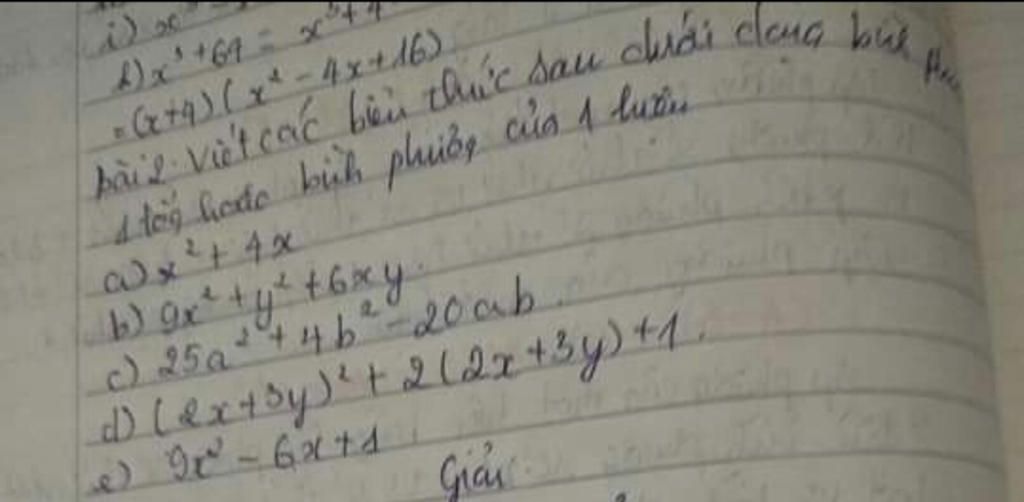 i) x³
k) x³ + 64 = x³ + 4
= (x+4)(x² - 4x + 16)
bài 2. Viết các biểu thức sau dưới dạng bình
1 tổng hoặc bình phương của 1 hiệu
a) x² + 4x
b) 9x² + y² + 6xy.
c) 25a² + 4b² - 20ab.
d) (2x + 3y)² + 2(2x + 3y) + 1.
e) 9x² - 6x + 1
Giải